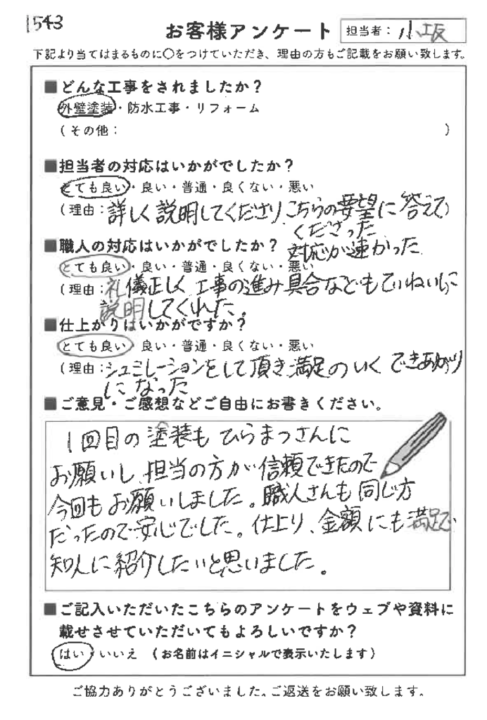 1543
お客様アンケート 担当者: 小坂
下記より当てはまるものに○をつけていただき、理由の方もご記載をお願い致します。
■どんな工事をされましたか?
外壁塗装・防水工事・リフォーム
(その他: )
■担当者の対応はいかがでしたか?
とても良い・良い・普通・良くない・悪い
(理由: 詳しく説明してくださり、こちらの要望に答えて
くださった
対応が速かった
■職人の対応はいかがでしたか?
とても良い・良い・普通・良くない・悪い
(理由: 礼儀正しく、工事の進み具合などもていねいに
説明してくれた。
■仕上がりはいかがですか?
とても良い・良い・普通・良くない・悪い
(理由: シュミレーションをして頂き満足のいくできあがり
になった
■ご意見・ご感想などご自由にお書きください。
1回目の塗装もひらまつさんに
お願いし、担当の方が信頼できたので
今回もお願いしました。職人さんも同じ方
だったので安心でした。仕上り、金額にも満足で
知人に紹介したいと思いました。
■ご記入いただいたこちらのアンケートをウェブや資料に
載せさせていただいてもよろしいですか?
はい・いいえ (お名前はイニシャルで表示いたします)
ご協力ありがとうございました。ご返送をお願い致します。